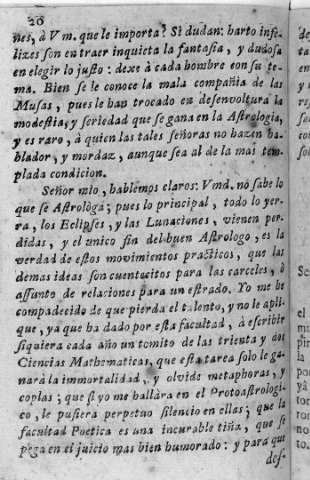 20
nes, à Vm. que le importa? Si dudan: harto infe-
lizes son en traer inquieta la fantasia, y dudosa
en elegir lo justo: dexe à cada hombre con su te-
ma. Bien se le conoce la mala compañia de las
Musas, pues le han trocado en desenvoltura la
modestia, y seriedad que se gana en la Astrologia,
y es raro, à quien las tales señoras no hazen ha-
blador, y mordaz, aunque sea al de la mas tem-
plada condicion.
Señor mio, hablemos claros: Vmd. no sabe lo
que se Astrològa; pues lo principal, todo lo yer-
ra, los Eclipses, y las Lunaciones, vienen per-
didas, y el unico fin del buen Astrologo, es la
verdad de estos movimientos practicos, que las
demas ideas son cuentecitos para las carceles, ò
assunto de relaciones para un estrado. Yo me he
compadecido de que pierda el talento, y no le apli-
que, ya que ha dado por esta facultad, à escribir
siquiera cada año un tomito de las treinta y dos
Ciencias Mathematicas, que esta tarea solo le ga-
narà la immortalidad, y olvide metaphoras, y
coplas; que si yo me hallàra en el Protoastrologi-
co, le pusiera perpetuo silencio en ellas; que la
facultad Poetica es una incurable tiña, que se
pega en el juicio mas bien humorado: y para que
des-